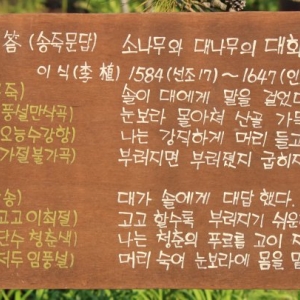 答 (송죽문답) 소나무와 대나무의 대화
이 식(李植) 1584(선조17)~1647(인
죽 솔이 대에게 말을 걸었다
풍설만산곡 눈보라 몰아쳐 산골 가득
오능수강항 나는 강직하게 머리 들고
가절불가곡 부러지면 부러졌지 굽히지
송 대가 솔에게 대답했다.
고고이최절 고고 할수록 부러지기 쉬운
단수청춘색 나는 청춘의 푸르름 고이 지
저두임풍설 머리 숙여 눈보라에 몸을 맡